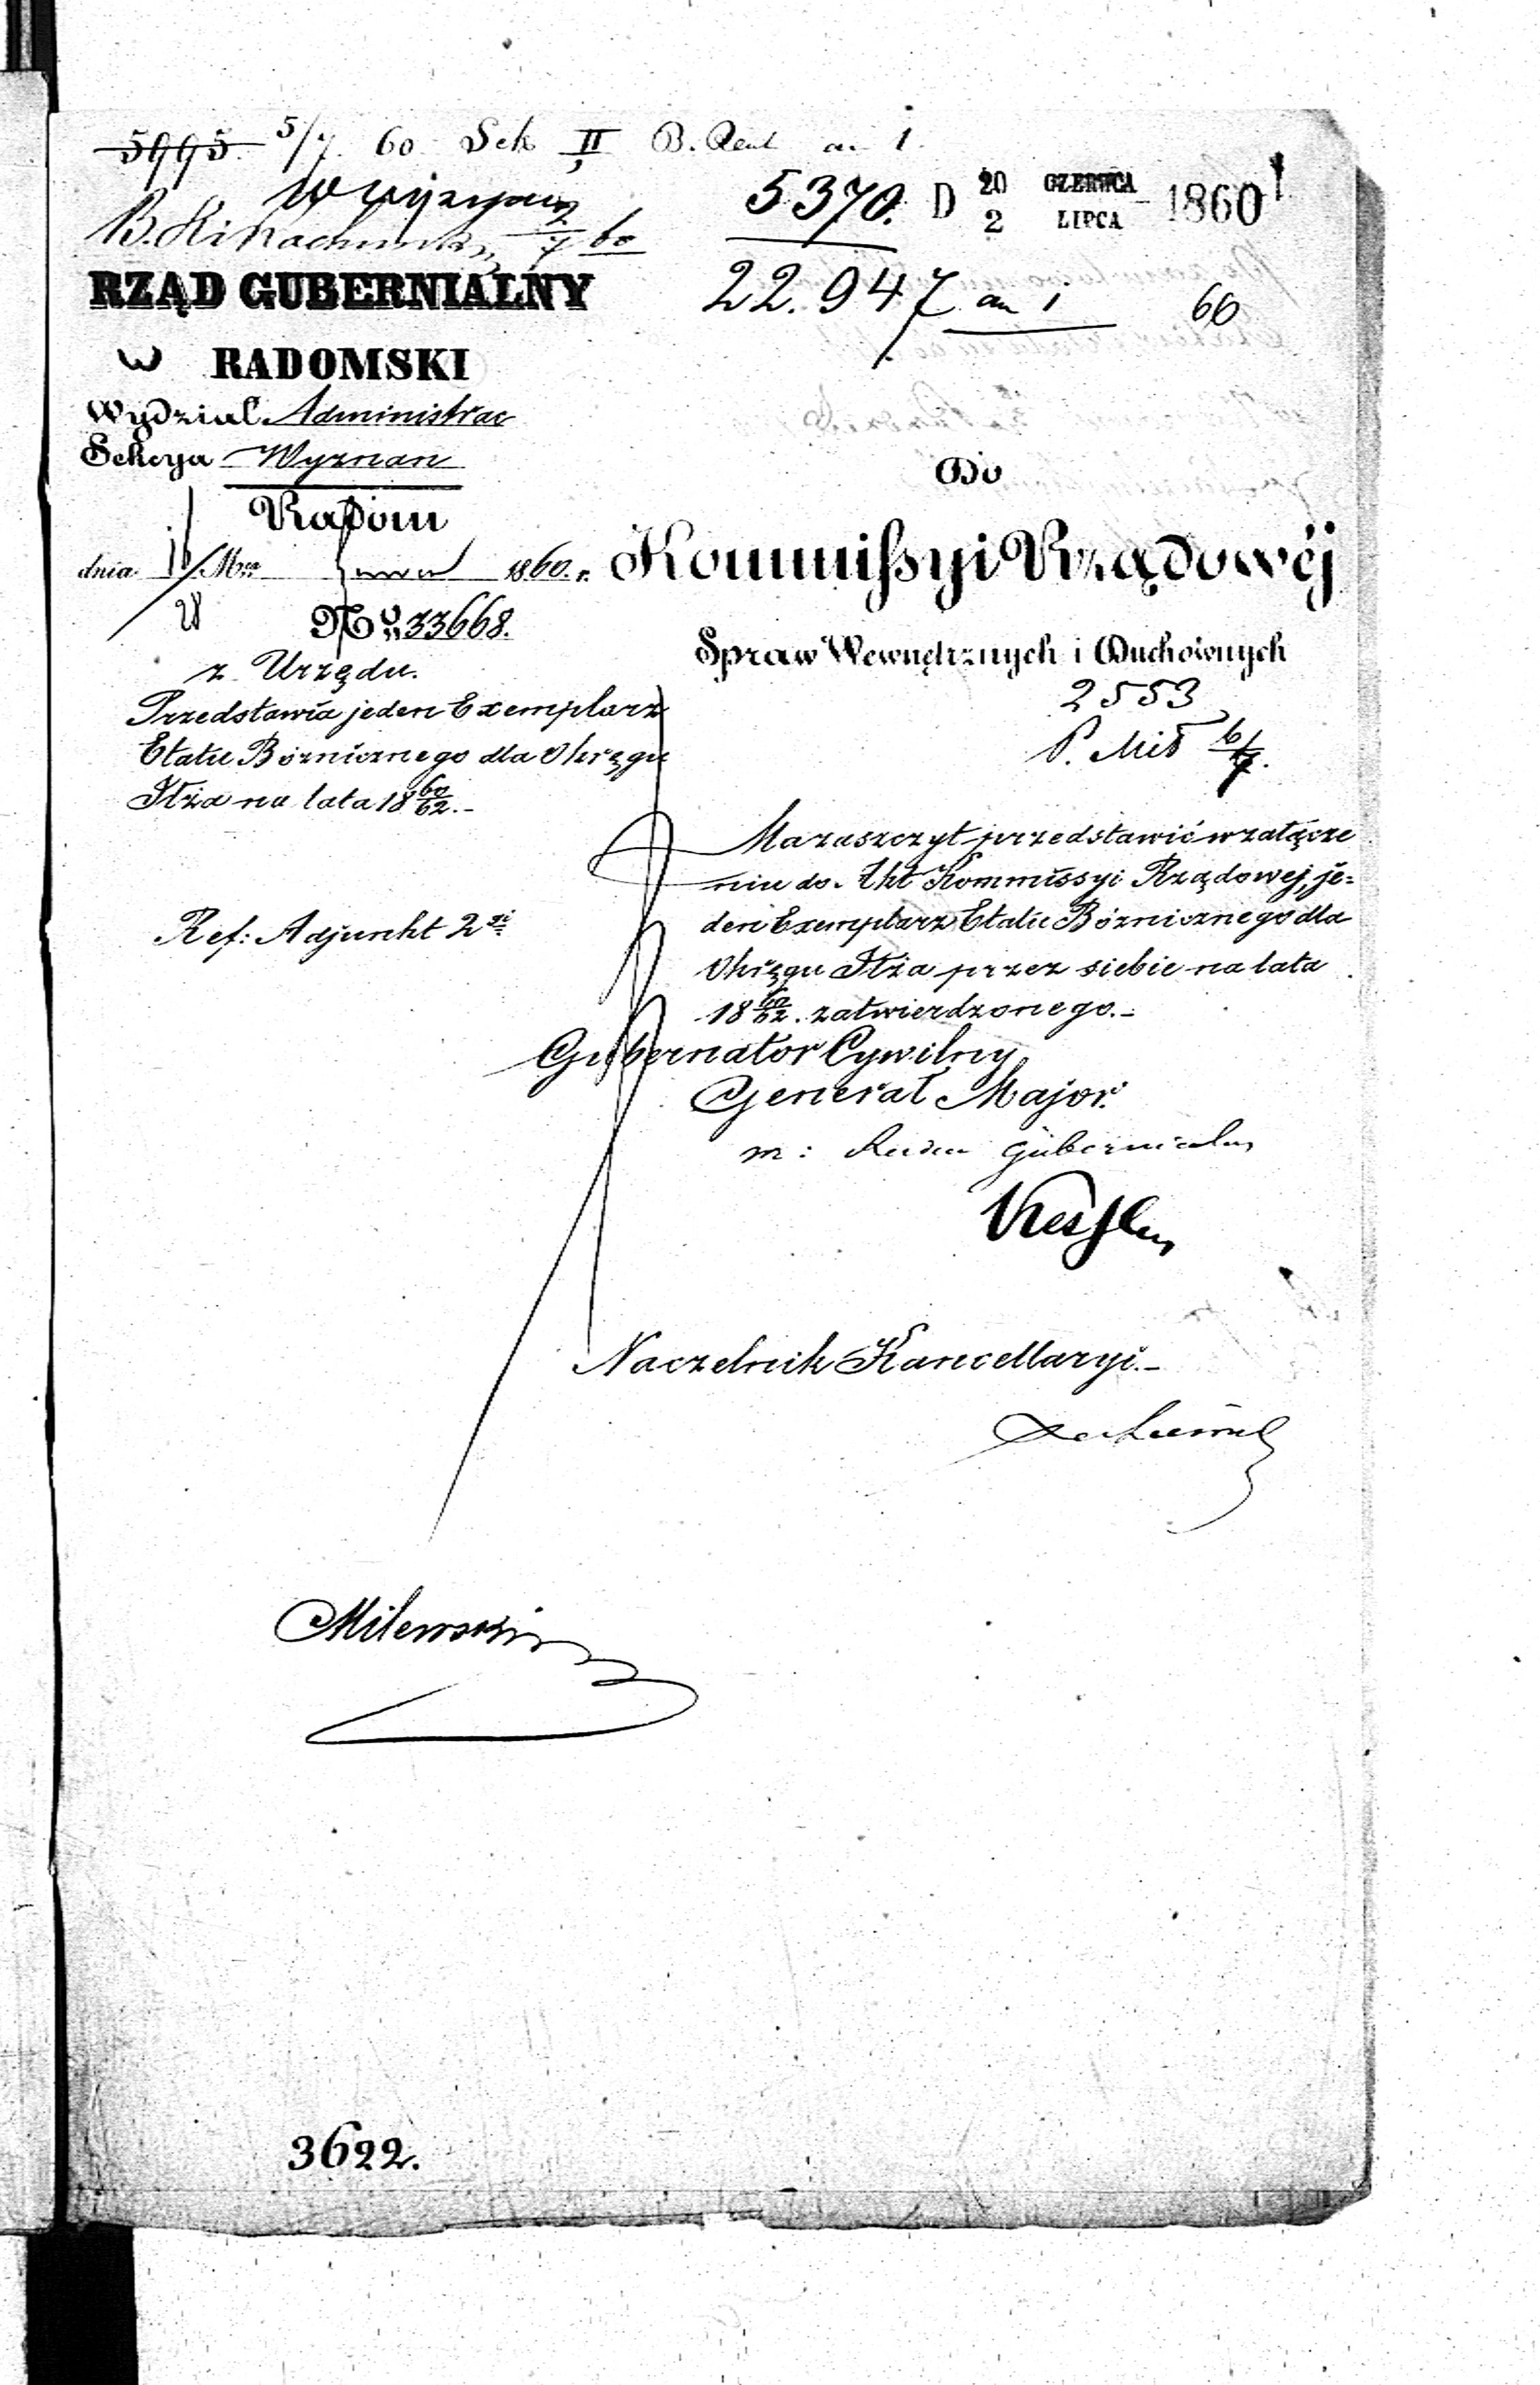 5995 5/7 60 Sek II B. Rent an 1.
5370. D 20/2 CZERWCA/LIPCA 1860
22.947 an 1 60
RZĄD GUBERNIALNY
w RADOMSKI
Wydział Administrac
Sekcya Wyznan
Radom
dnia 16/28 Mca 1860. r.
No 33668.
z Urzędu.
Przedstawia jeden Exemplarz
Etatu Bóżnicznego dla Okręgu
Iłża na lata 18 60/62.-
Ref: Adjunkt 2gi
Do
Kommissyi Rządowéj
Spraw Wewnętrznych i Duchownych
2553
P. Mil 6/7.
Ma zaszczyt przedstawić w załącze
niu do Akt Kommissyi Rządowej, je=
den Exemplarz Etatu Bóżnicznego dla
Okręgu Iłża przez siebie na lata
18 60/62. zatwierdzonego.-
Gubernator Cywilny
Generał Major.
m: Radca Gubernialny
Naczelnik Kancellaryi.-
Milewski
3622.